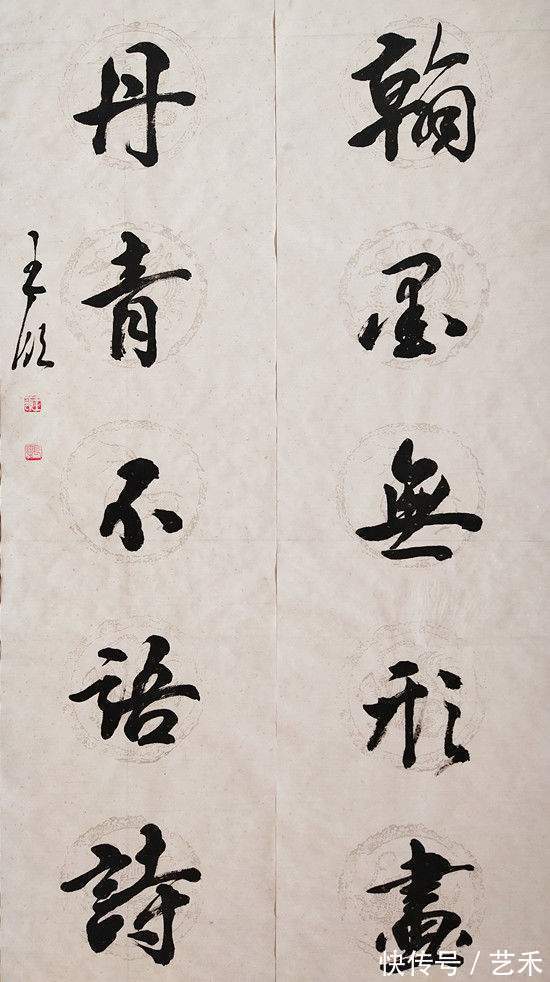 翰墨無形畫
丹青不語詩
快传号/艺禾